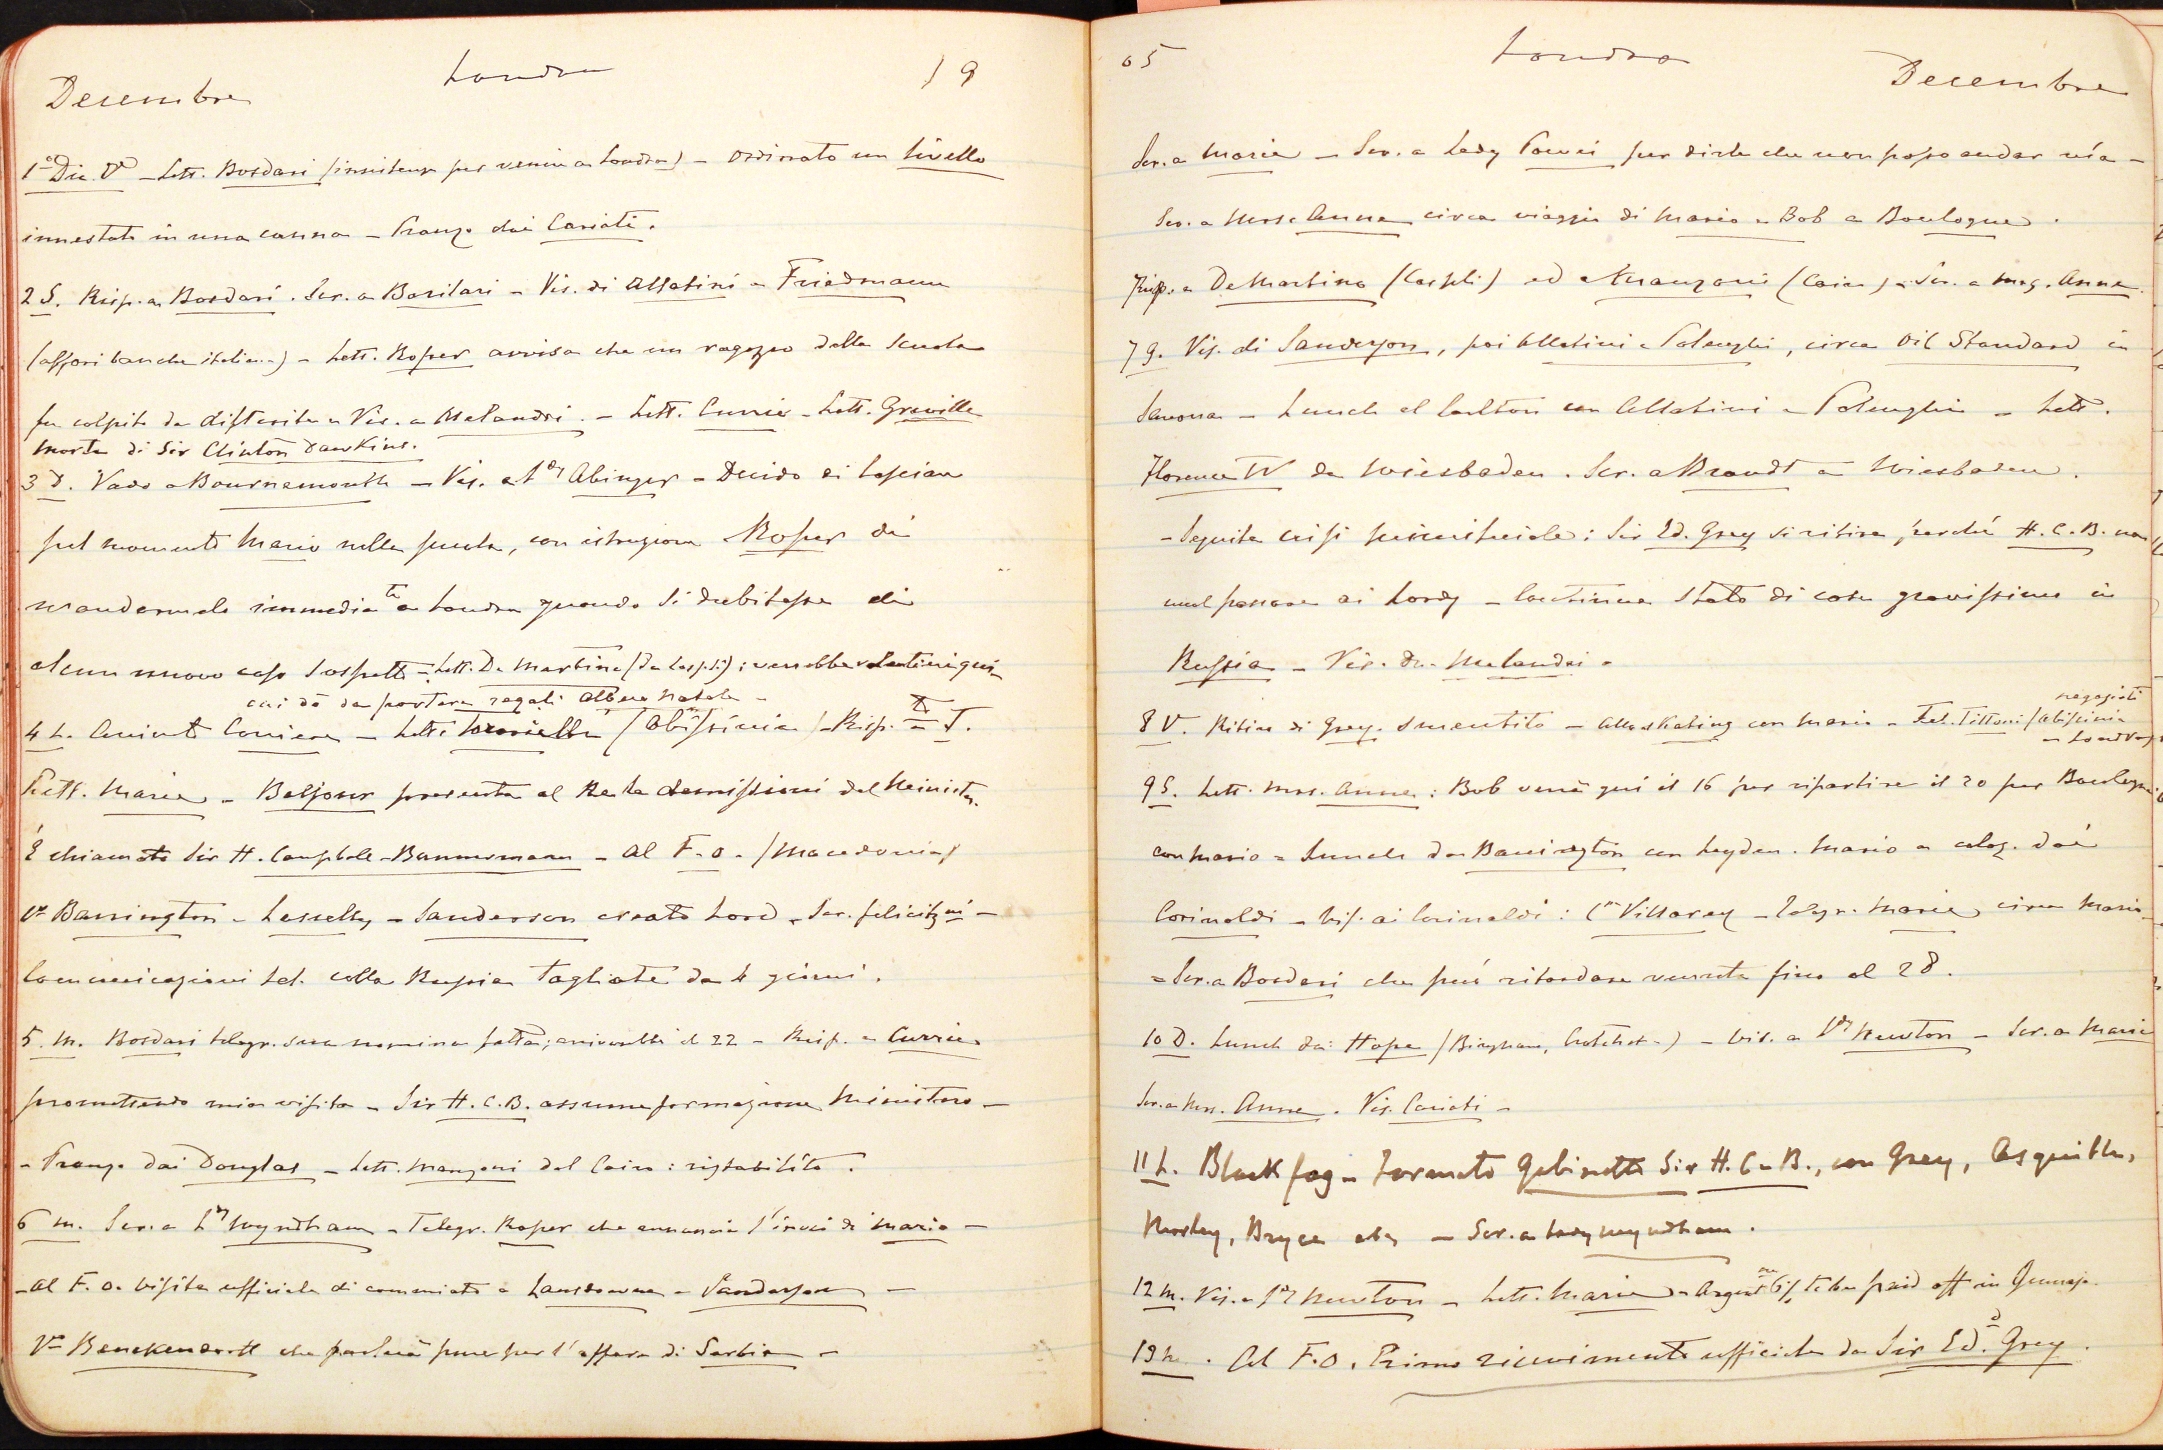 Decembre Londra 19
1° Dic. V. – Lett. Bordari (insistenza per venire a Londra) – ordinato un livello
innestato in una canna – Pranzo dai Cariati.
2 S. Risp. a Bordari. Scr. a Barilari – Vis. di Allatini e Friedmann
(affari banche italiane) – Lett. Roper avvisa che un ragazzo della scuola
fu colpito da difterite – Vis. a Melandri. – Lett. Currie – Lett. Greville
morte di Sir Clinton Dawkins.
3 D. Vado a Bournemouth – Vis. a Ldy Abinger – Decido di lasciare
pel momento Mario nella scuola, con istruzione Roper di
mandarmelo immediate a Londra quando si dubitasse di
alcun nuovo caso sospetto – Lett. De Martino : verrebbe volentieri qui
cui dò da portare regali albero Natale –
4 L. Corriere – Lett. (Abissinia) – Risp. a T.
Lett. Maria – Balfour presenta al Re la demissioni del Minist.
È chiamato Sir H. Campbele-Bannermann – Al F.O. (Macedonia)
Vo Barrington – – Sanderson creato Lord – Scr. felicitzni –
Comunicazioni tel. colla Russia tagliate da 4 giorni.
5 M. Bordari telegr. sua nomina fatta; arriverebbe il 22 – Risp. a Currie
promettendo mia visita – Sir H.C.B. assume formazione Ministero –
– Pranzo dai Douglas – Lett. Manzoni dal Cairo : ristabilito.
6 M. Scr. a Ldy Wyndham – Telegr. Roper che annuncia l'invio di Mario –
– Al F.O. visita ufficiale di commiato a Lansdowne – Sanderson –
Vo Benckendorff che parlerà pure per l'affare di Serbia –
05 Londra Decembre
Scr. a Maria – Scr. a Lady per dirle che non posso andar via –
Scr. a Mrs. Anna circa viaggio di Mario e Bob a Boulogne.
Risp. a De Martino ed a Manzoni (Cairo) – Scr. a Mrs. Anna.
7 G. Vis. di Sanderson, poi Allatini e Polenghi, circa Oil Standard in
Savona – Lunch al Carlton con Allatini e Polenghi – Lett.
Florence W da Wiesbaden. Scr. a Brandt a Wiesbaden.
– Seguita crisi ministeriale : Sir Ed. Grey si ritira perché H.C.B. non
vuol passare ai Lords – Continua stato di cose gravissimo in
Russia – Vis. Dr. Melandri.
8 V. Ritiro di Grey smentito – Allo Skating con Mario – Tel. Tittoni (Abissinia
negoziati
– Londra)
9 S. Lett. Mrs. Anna : Bob verrà qui il 16 per ripartire il 20 per Boulogne
con Mario – Lunch da Barrington con Leyden. Mario a colaz. dai
Corinaldi – Vis. ai Corinaldi : Villaray – Telegr. Maria circa Mario
– Scr. a Bordari che può ritardare venuta fino al 28.
10 D. Lunch dai Hope – Vis. a Ldy Newton – Scr. a Maria
Scr. a Mrs. Anna. Vis. Cariati –
11 L. Black fog – Formato Gabinetto Sir H. C–B., con Grey, Asquith,
Morley, Bryce etc – Scr. a Lady Wyndham.
12 M. Vis. a Ldy Newton – Lett. Maria – to be paid off in
13 M. Al F.O. Primo ricevimento ufficiale da Sir Ed. Grey.